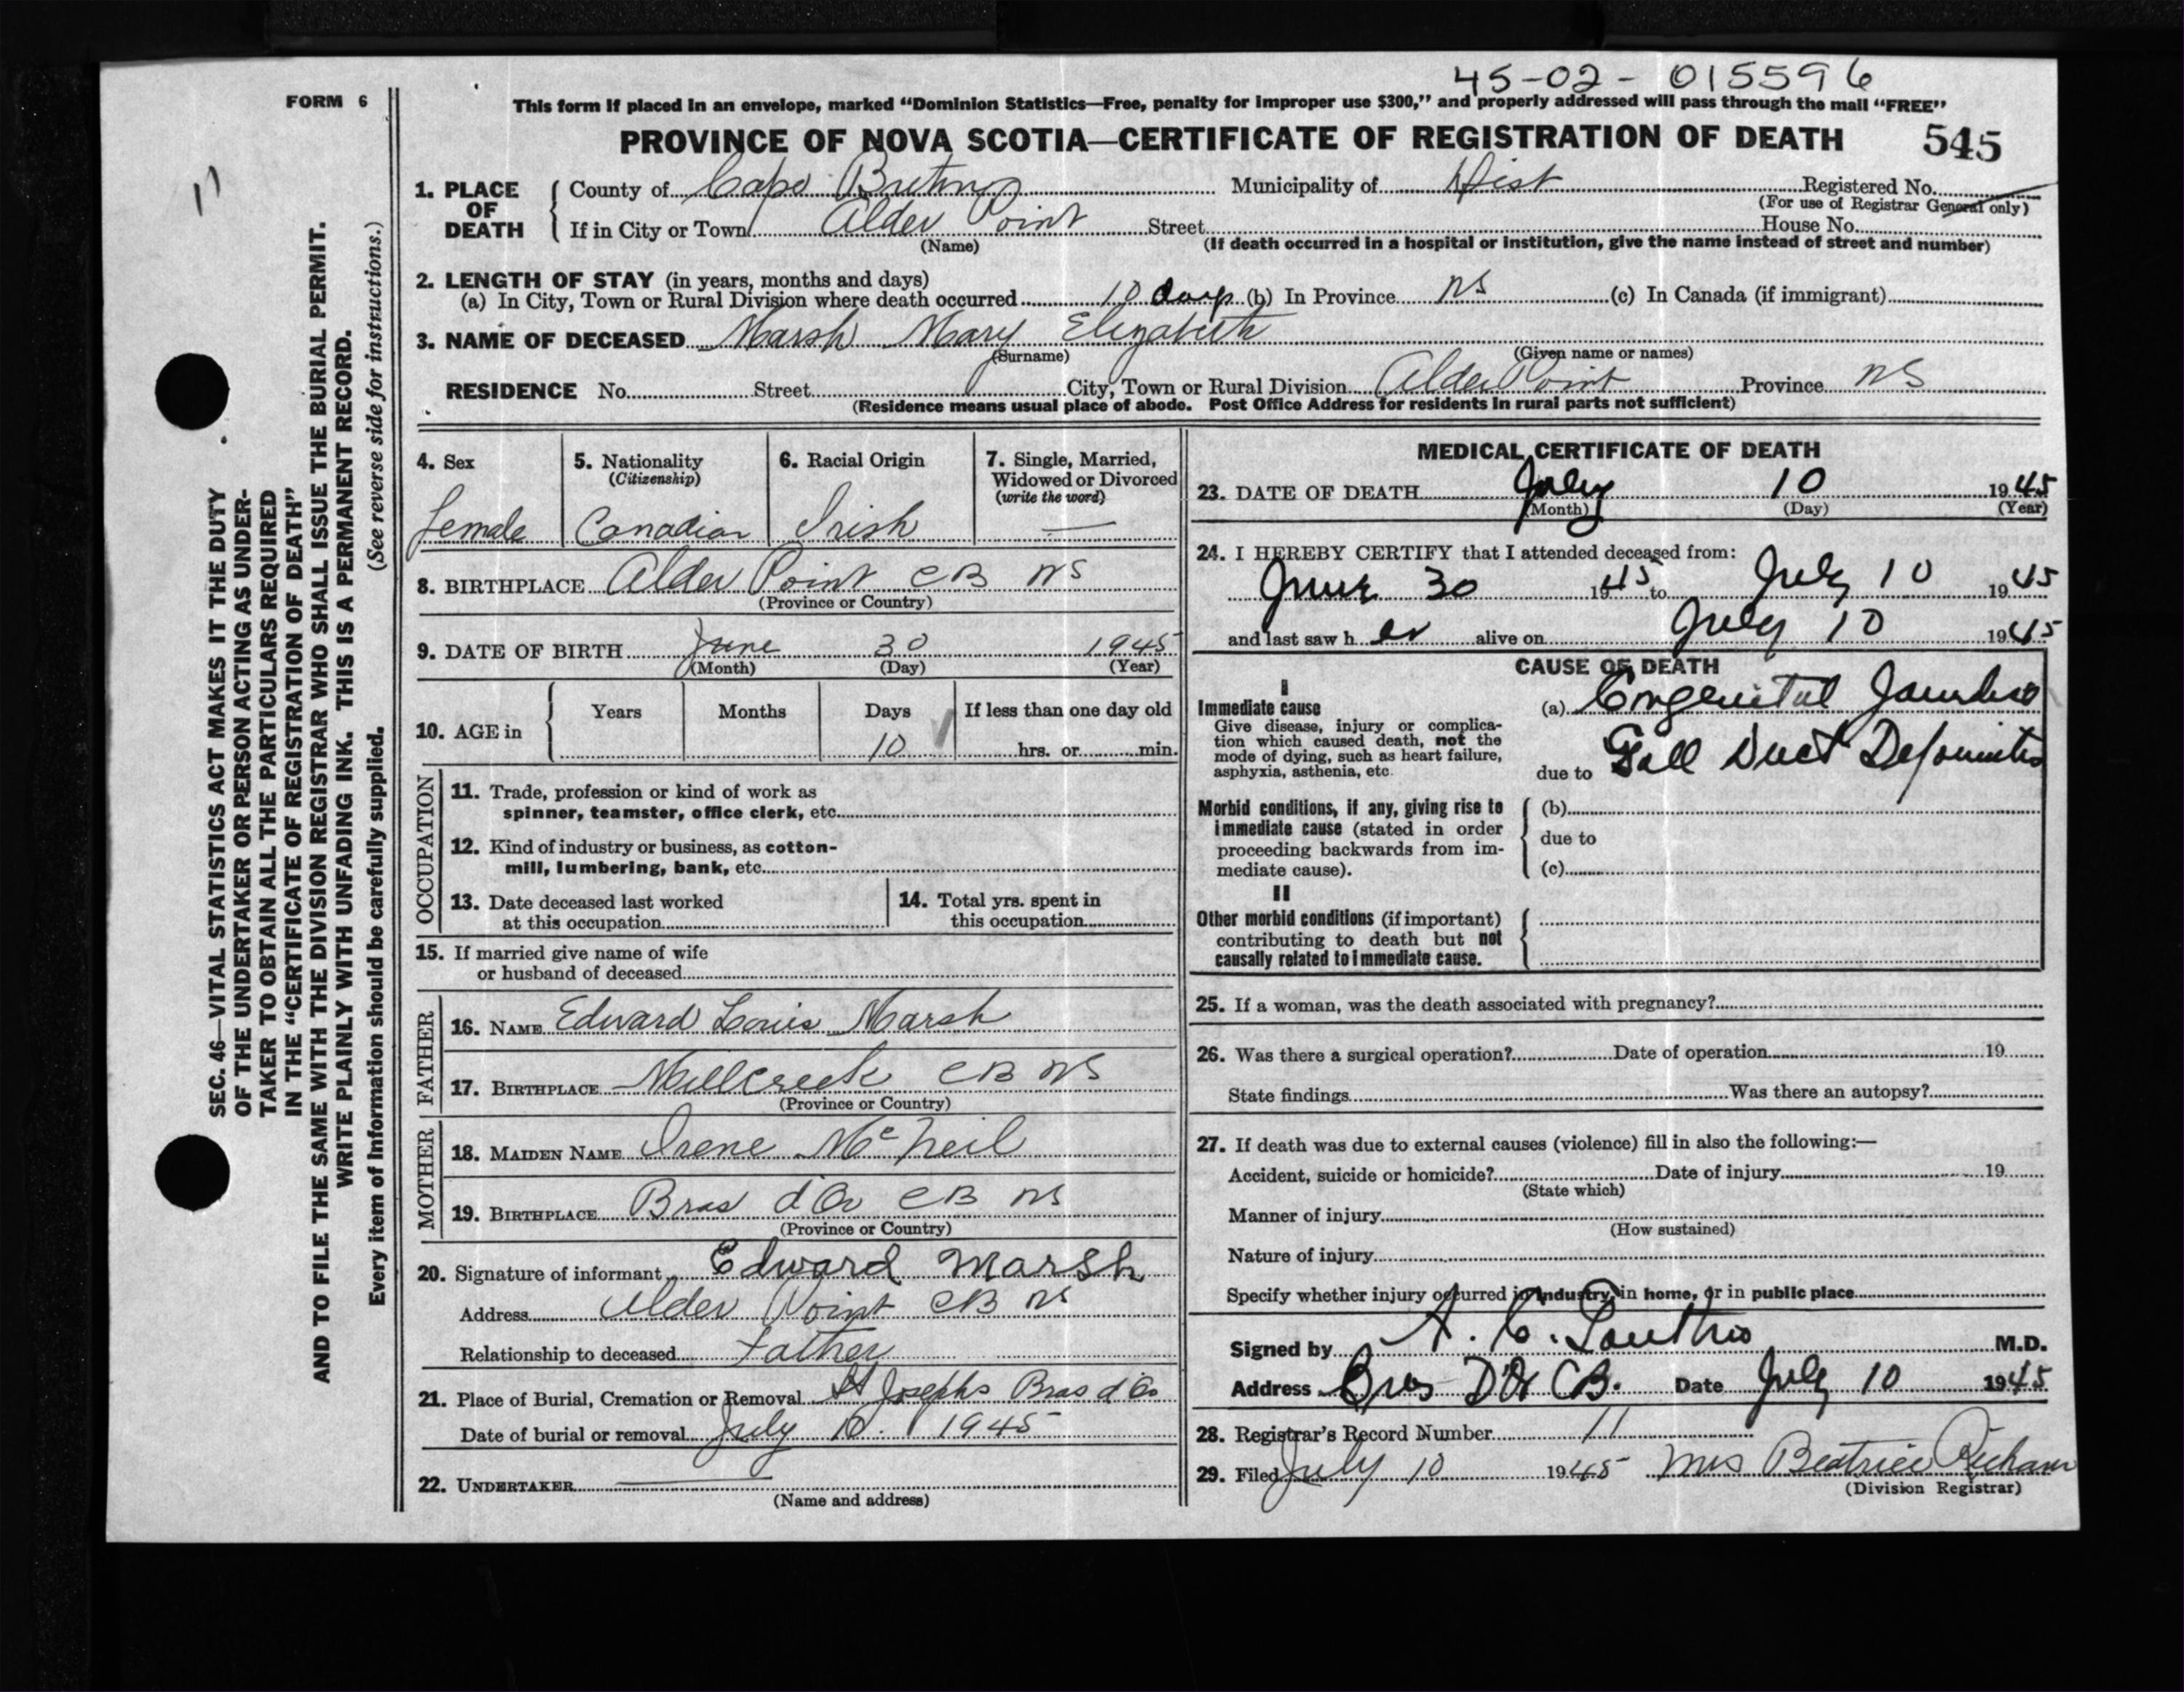 45-02-015596
FORM 6
This form if placed in an envelope, marked "Dominion Statistics—Free, penalty for improper use $300," and properly addressed will pass through the mail "FREE"
PROVINCE OF NOVA SCOTIA—CERTIFICATE OF REGISTRATION OF DEATH 545
11
SEC. 46—VITAL STATISTICS ACT MAKES IT THE DUTY
OF THE UNDERTAKER OR PERSON ACTING AS UNDER-
TAKER TO OBTAIN ALL THE PARTICULARS REQUIRED
IN THE "CERTIFICATE OF REGISTRATION OF DEATH"
AND TO FILE THE SAME WITH THE DIVISION REGISTRAR WHO SHALL ISSUE THE BURIAL PERMIT.
WRITE PLAINLY WITH UNFADING INK. THIS IS A PERMANENT RECORD.
Every item of Information should be carefully supplied. (See reverse side for instructions.)
1. PLACE OF DEATH County of Cape Breton Municipality of Dist Registered No.
(For use of Registrar General only)
If in City or Town Alder Point Street House No.
(Name) (If death occurred in a hospital or institution, give the name instead of street and number)
2. LENGTH OF STAY (in years, months and days)
(a) In City, Town or Rural Division where death occurred 10 days (b) In Province NS (c) In Canada (if immigrant)
3. NAME OF DECEASED Marsh Mary Elizabeth
(Surname) (Given name or names)
RESIDENCE No. Street City, Town or Rural Division Alder Point Province NS
(Residence means usual place of abode. Post Office Address for residents in rural parts not sufficient)
4. Sex 5. Nationality 6. Racial Origin 7. Single, Married,
(Citizenship) Widowed or Divorced
(write the word)
female Canadian Irish —
8. BIRTHPLACE Alder Point CB NS
(Province or Country)
9. DATE OF BIRTH June 30 1945
(Month) (Day) (Year)
10. AGE in Years Months Days If less than one day old
10 hrs. or min.
OCCUPATION
11. Trade, profession or kind of work as
spinner, teamster, office clerk, etc.
12. Kind of industry or business, as cotton-
mill, lumbering, bank, etc.
13. Date deceased last worked 14. Total yrs. spent in
at this occupation this occupation
15. If married give name of wife
or husband of deceased
FATHER
16. NAME Edward Louis Marsh
17. BIRTHPLACE Millcreek CB NS
(Province or Country)
MOTHER
18. MAIDEN NAME Irene McNeil
19. BIRTHPLACE Bras d'Or CB NS
(Province or Country)
20. Signature of informant Edward Marsh
Address Alder Point CB NS
Relationship to deceased Father
21. Place of Burial, Cremation or Removal St Josephs Bras d'Or
Date of burial or removal July 10. 1945
22. UNDERTAKER
(Name and address)
MEDICAL CERTIFICATE OF DEATH
23. DATE OF DEATH July 10 1945
(Month) (Day) (Year)
24. I HEREBY CERTIFY that I attended deceased from:
June 30 1945 to July 10 1945
and last saw h er alive on July 10 1945
CAUSE OF DEATH
I
Immediate cause (a) Congenital Jaundice
Give disease, injury or complica-
tion which caused death, not the
mode of dying, such as heart failure,
asphyxia, asthenia, etc. due to Gall Duct Deformities
Morbid conditions, if any, giving rise to (b)
immediate cause (stated in order due to
proceeding backwards from im-
mediate cause). (c)
II
Other morbid conditions (if important)
contributing to death but not
causally related to immediate cause.
25. If a woman, was the death associated with pregnancy?
26. Was there a surgical operation? Date of operation 19
State findings Was there an autopsy?
27. If death was due to external causes (violence) fill in also the following:—
Accident, suicide or homicide? Date of injury 19
(State which)
Manner of injury
(How sustained)
Nature of injury
Specify whether injury occurred in industry, in home, or in public place
Signed by A. C. M.D.
Address Bras D'Or CB. Date July 10 1945
28. Registrar's Record Number 11
29. Filed July 10 1945 Mrs Beatrice
(Division Registrar)